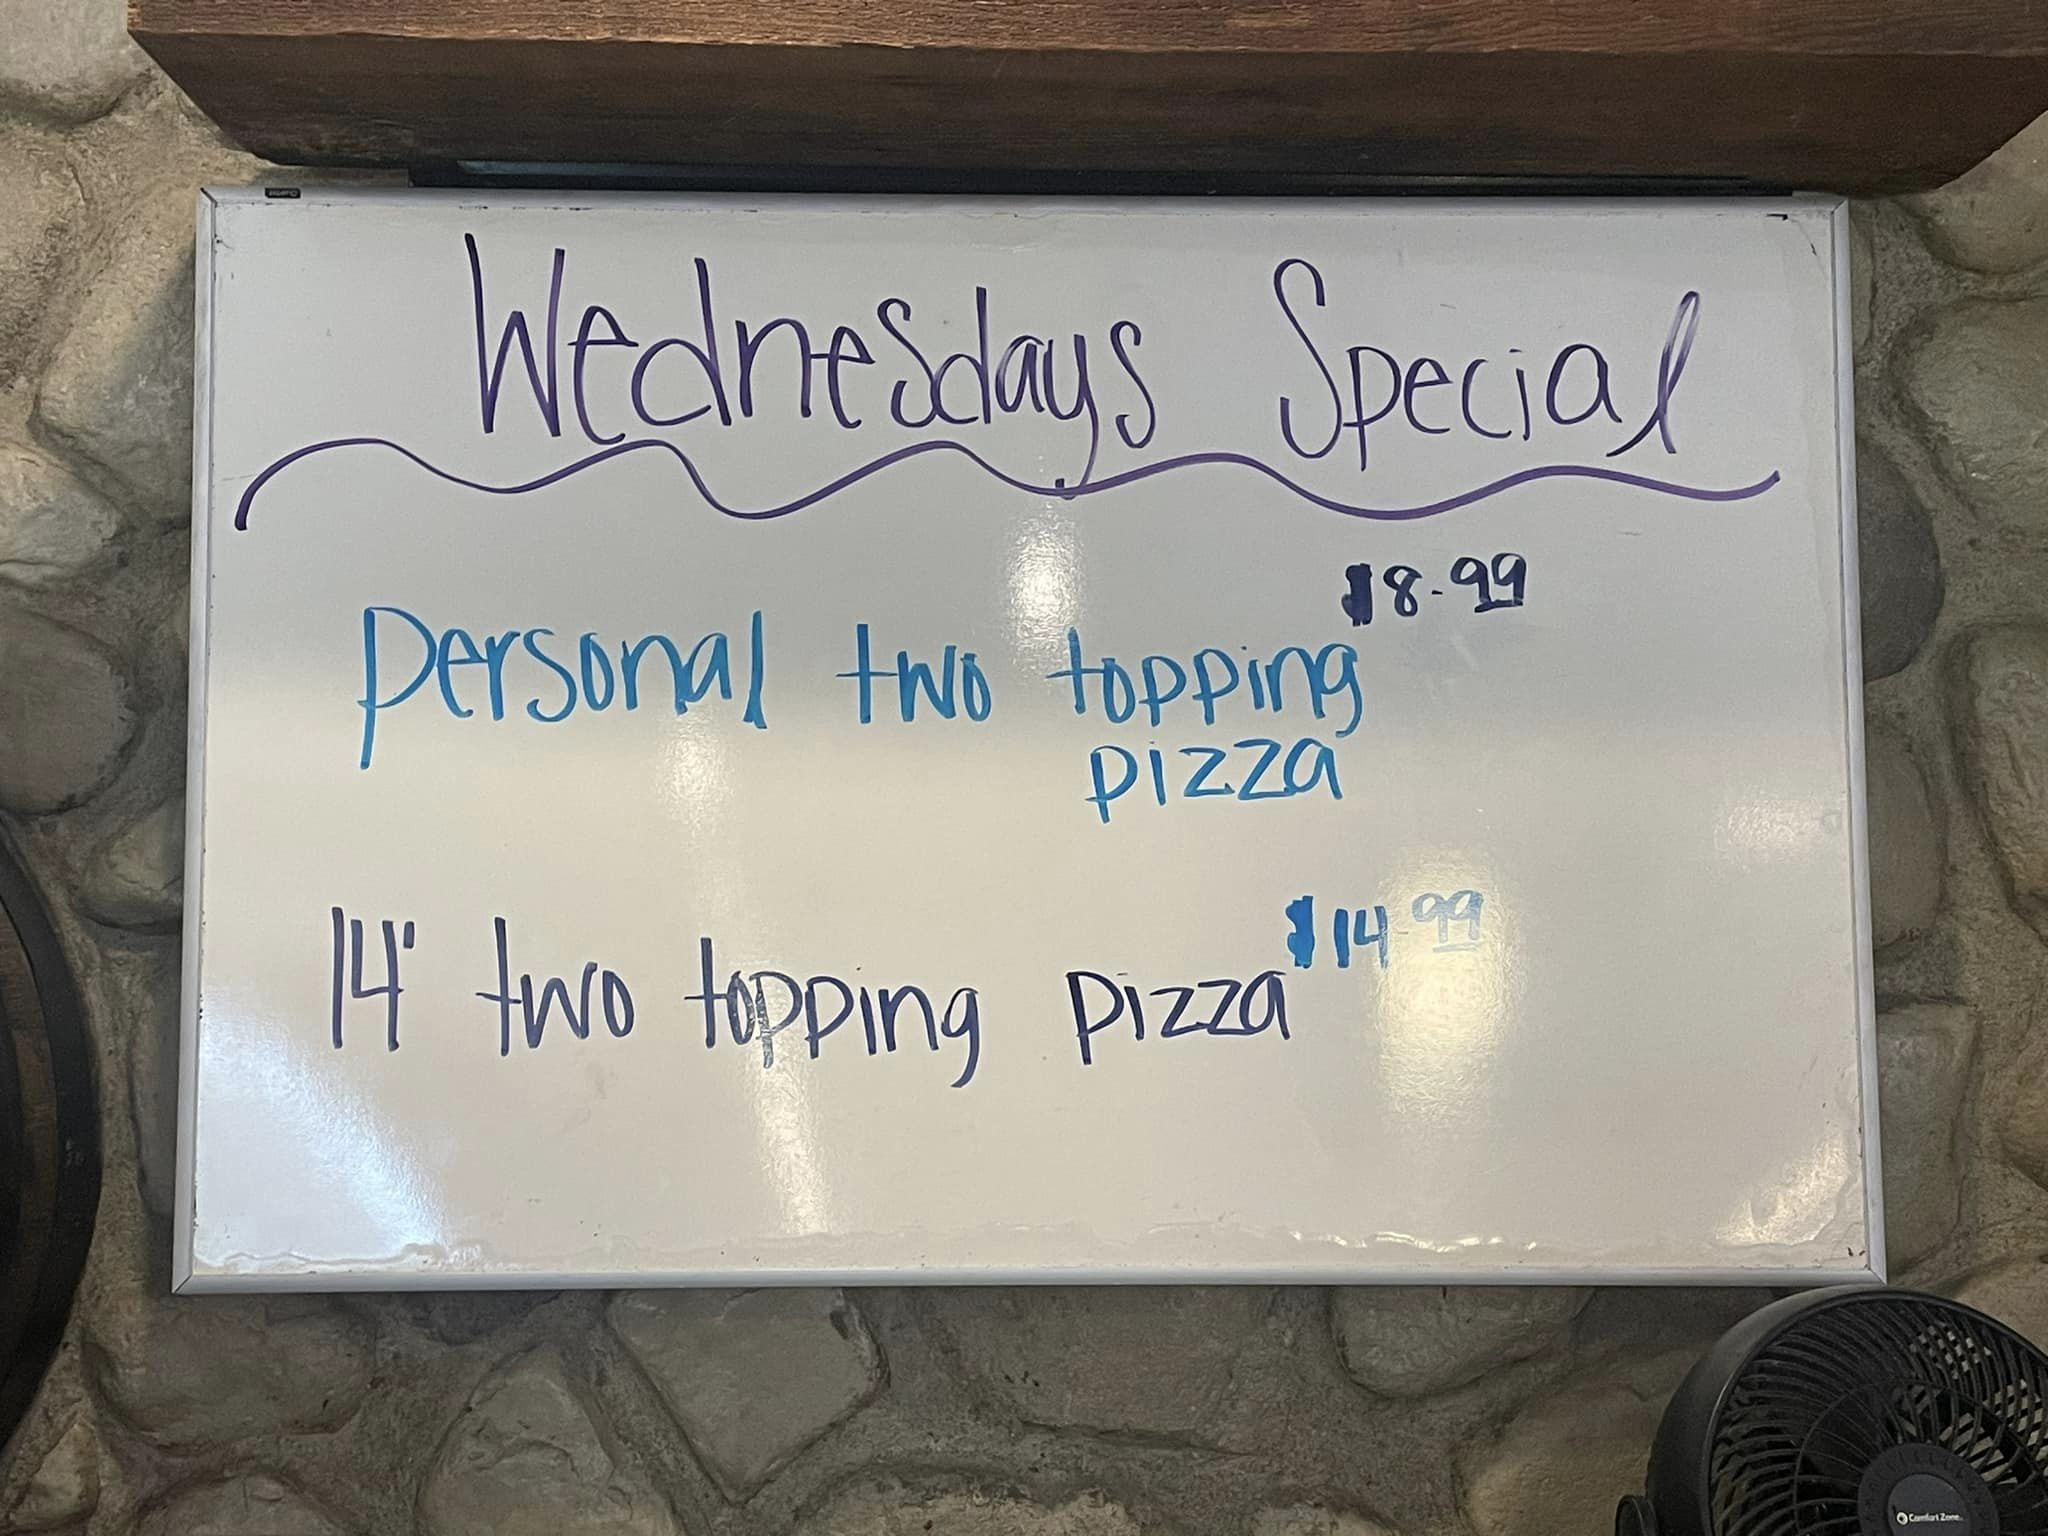 Wednesdays Special
$8.99
Personal two topping
pizza
14' two topping pizza $14.99
Comfort Zone